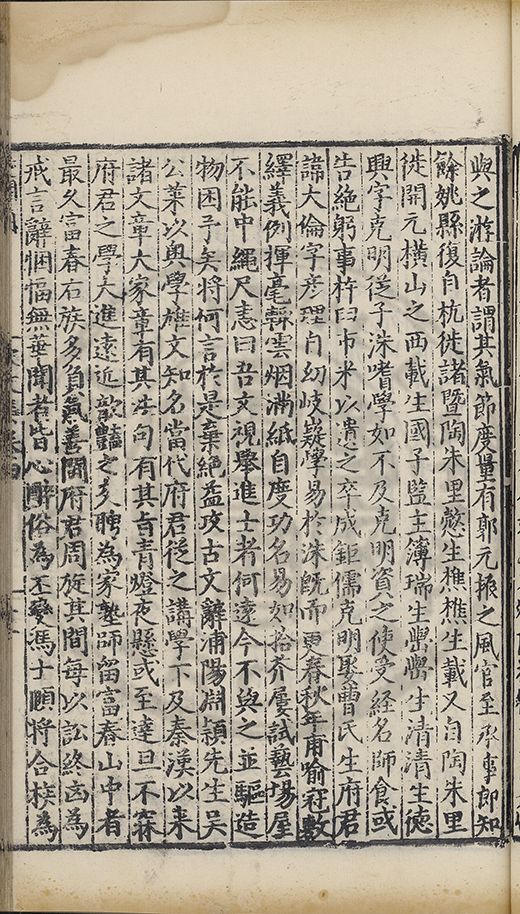 與之游論者謂其氣節度量有郭元振之風官至承事郎知
餘姚縣復自杭徙諸暨陶朱里慤生樵樵生載又自陶朱里
徙開元橫山之西載生國子監主簿瑞生巒巒生清清生德
興字克明從子洙嗜學如不及克明資之使受経名師食或
告絕躬事杵臼市米以遺之卒成鉅儒克明娶曹氏生府君
諱大倫字彥理自幼岐嶷學易於洙既而更春秋年甫喻冠敷
繹義例揮毫輙雲烟滿紙自度功名易如拾芥屢試藝場屋
不能中繩尺恚曰吾文視舉進士者何遠今不與之並驅造
物困予矣將何言於是棄絕益攻古文辭浦陽淵頴先生吳
公萊以奥學雄文知名當代府君從之講學下及秦漢以来
諸文章大家章有其法句有其旨青燈夜縣或至達旦不寐
府君之學大進遠近歆豔之多聘為家塾師留富春山中者
最久富春右族多負氣善鬪府君周旋其間每以訟終凶為
戒言辭悃愊無華聞者皆心醉俗為丕變馮士頤將合族為